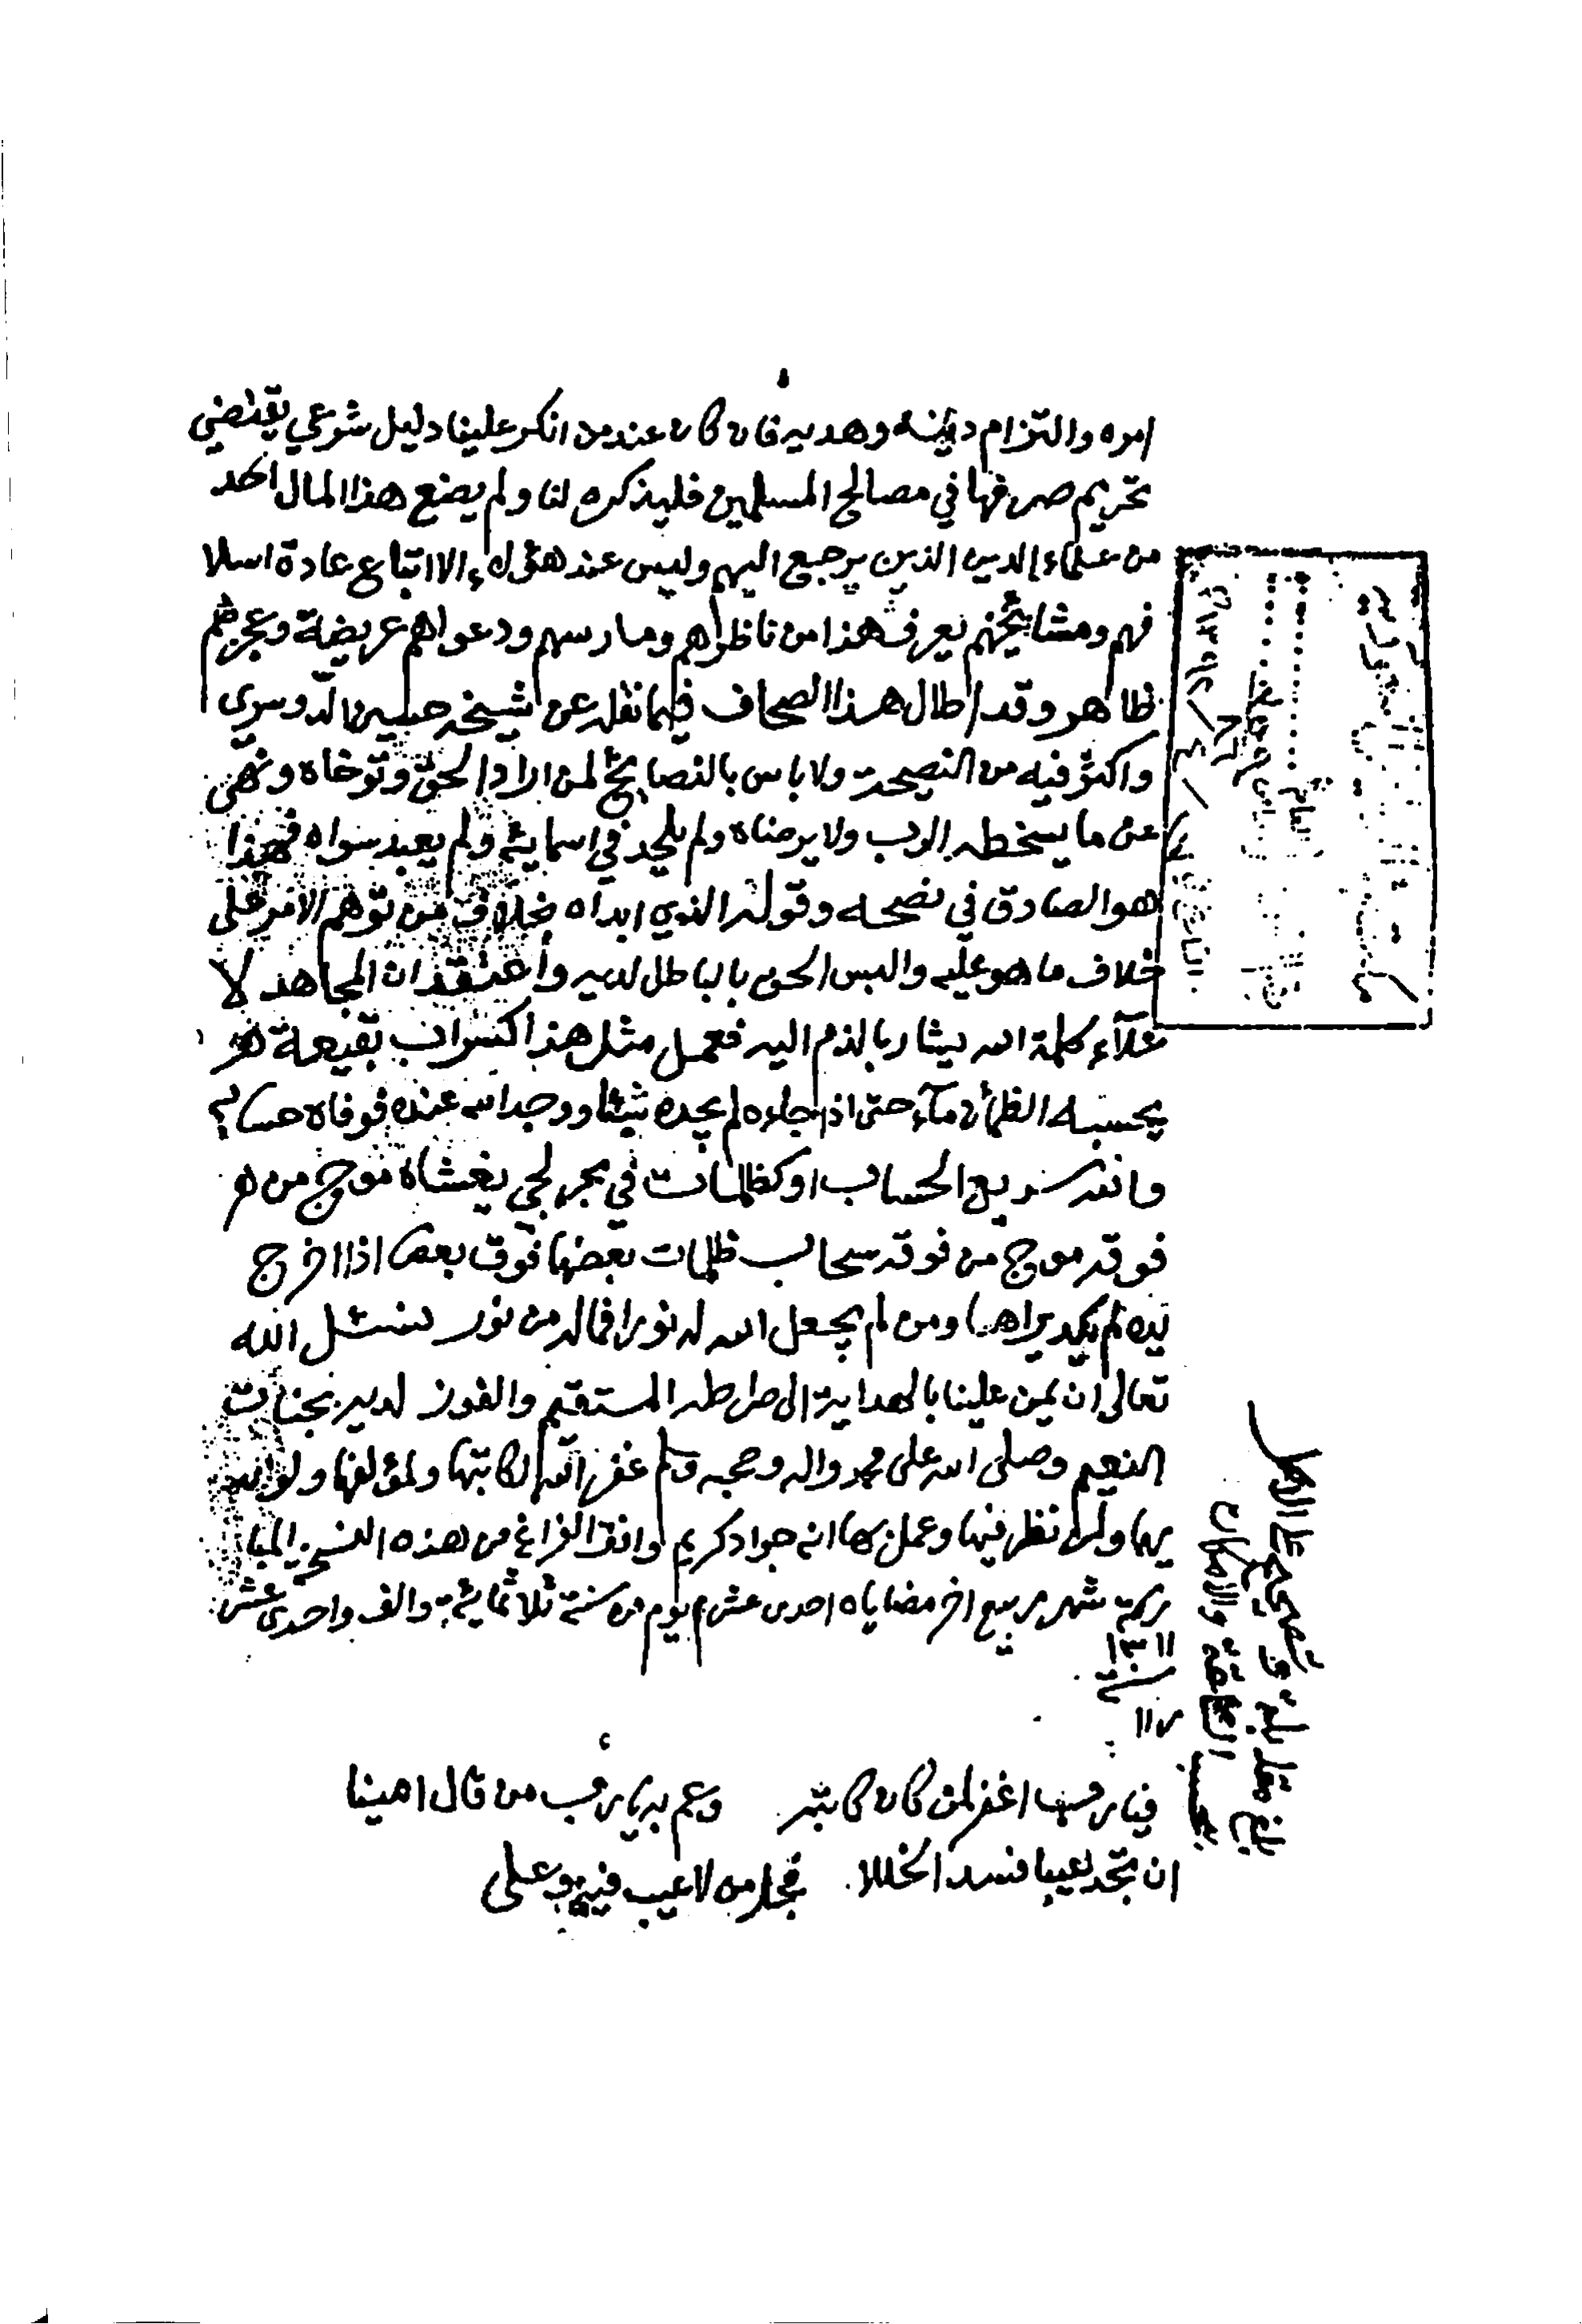 امره والتزام دينه وهديه فان كان عند من انكر علينا دليل شرعي يقتضي
تحريم صرفها في مصالح المسلمين فليذكره لنا ولم يضع هذا المال احد
من علماء الدين الذين يرجع اليهم وليس عند هؤلاء الا اتباع عادة اسلا
فهم ومشايخهم يعرف هذا من ناظرهم ومارسهم ودعواهم عريضة وعجزهم
ظاهر وقد اطال هذا الصحاف فيما نقله عن شيخه حسين الدوسري
واكثر فيه من النصيحة ولا باس بالنصايح لمن اراد الحق وتوخاه ونهى
عن ما يسخطه الرب ولا يرضاه ولم يلحد في اسمايه ولم يعبد سواه فهذا
هو الصادق في نصحه وقوله الذي ابداه بخلاف من توهم الامر على
خلاف ما هو عليه والبس الحق بالباطل لديه واعتقد ان المجاهد لا
علآء كلمة الله يشار بالذم اليه فعمل مثل هذا كسراب بقيعة
يحسبه الظمأن مآء حتى اذا جاءه لم يجده شيئا ووجد الله عنده فوفاه حسابه
والله سريع الحساب او كظلمات في بحر لجي يغشاه موج من
فوقه موج من فوقه سحاب ظلمات بعضها فوق بعض اذا اخرج
يده لم يكد يراها ومن لم يجعل الله له نورا فماله من نور نسئل الله
تعالى ان يمن علينا بالهداية الى صراطه المستقيم والفوز لديه بجنات
النعيم وصلى الله على محمد واله وصحبه وسلم غفر الله لكاتبها ولمؤلفها ولوالد
يهما ولمن نظر فيها وعمل بها انه جواد كريم وافق الفراغ من هذه النسخة المبا
ركة شهر ربيع اخر مضاياه احدى عشر يوم من سنة ثلاثمائة والف واحدى عشر
سنة ١٣١١
فيا رب اغفر لمن كان كاتبه وعم به يا رب من قال امينا
ان تجد عيبا فسد الخللا فجل من لا عيب فيه وعلى
بلغ مقابلة